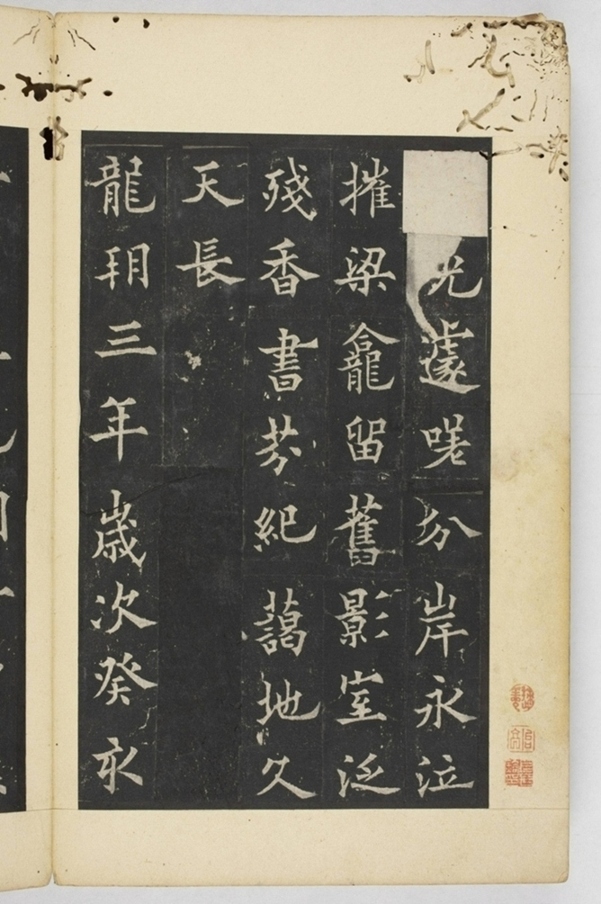 光遽嗟分岸永泣
摧梁龕留舊影室泛
殘香書芬紀藹地久
天長
龍朔三年歲次癸亥